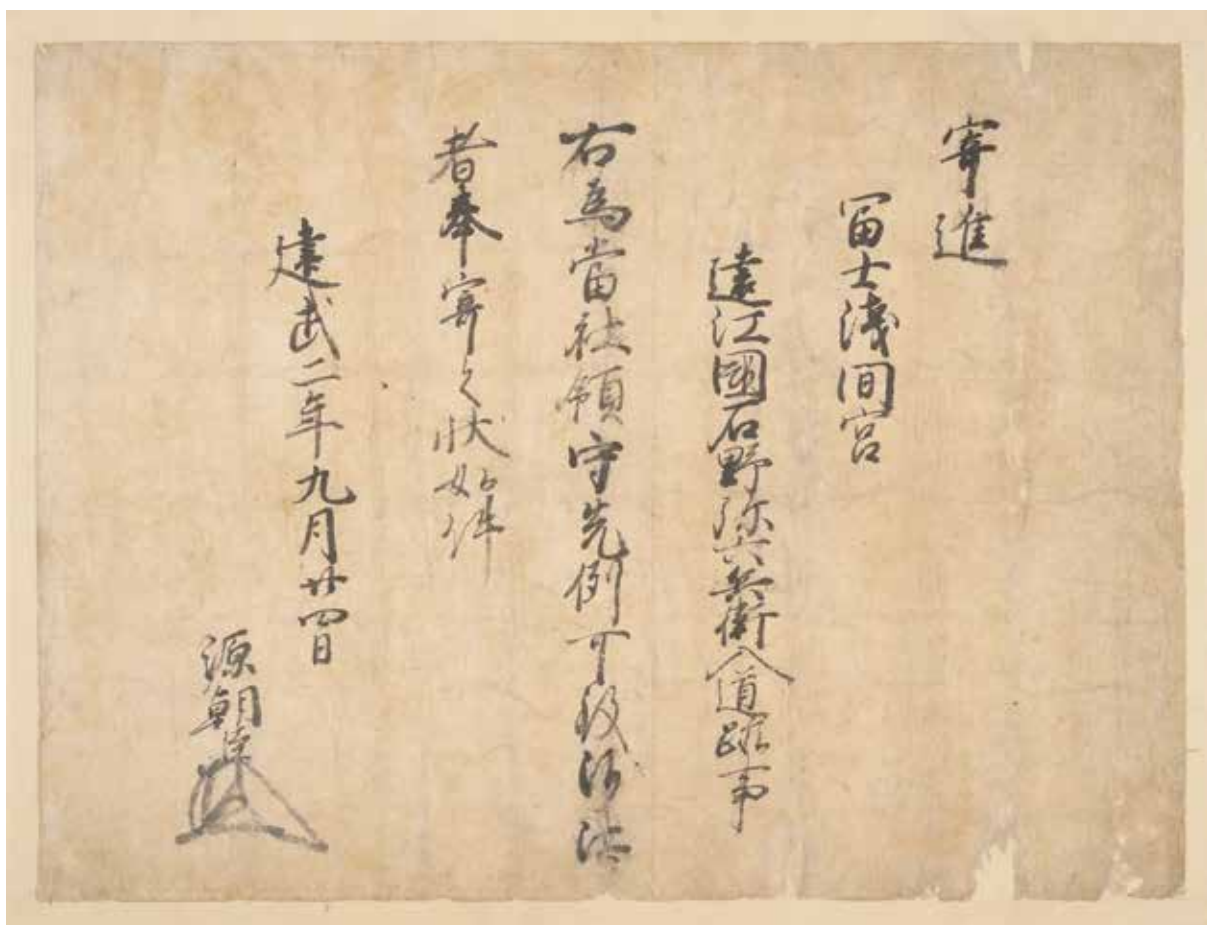 寄進
冨士淺間宮
遠江國石野弥六兵衛入道跡事
右爲當社領守先例可致沙汰
者奉寄之状如件
建武二年九月廿四日
源朝臣